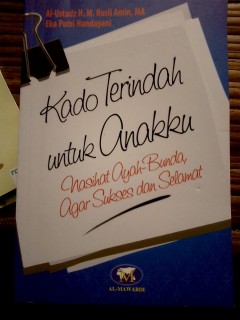 Al-Ustadz H. M. Rusli Amin, MA
Eka Putri Handayani
Kado Terindah
untuk Anakku
Nasihat Ayah-Bunda,
Agar Sukses dan Selamat
AL-MAWARDI